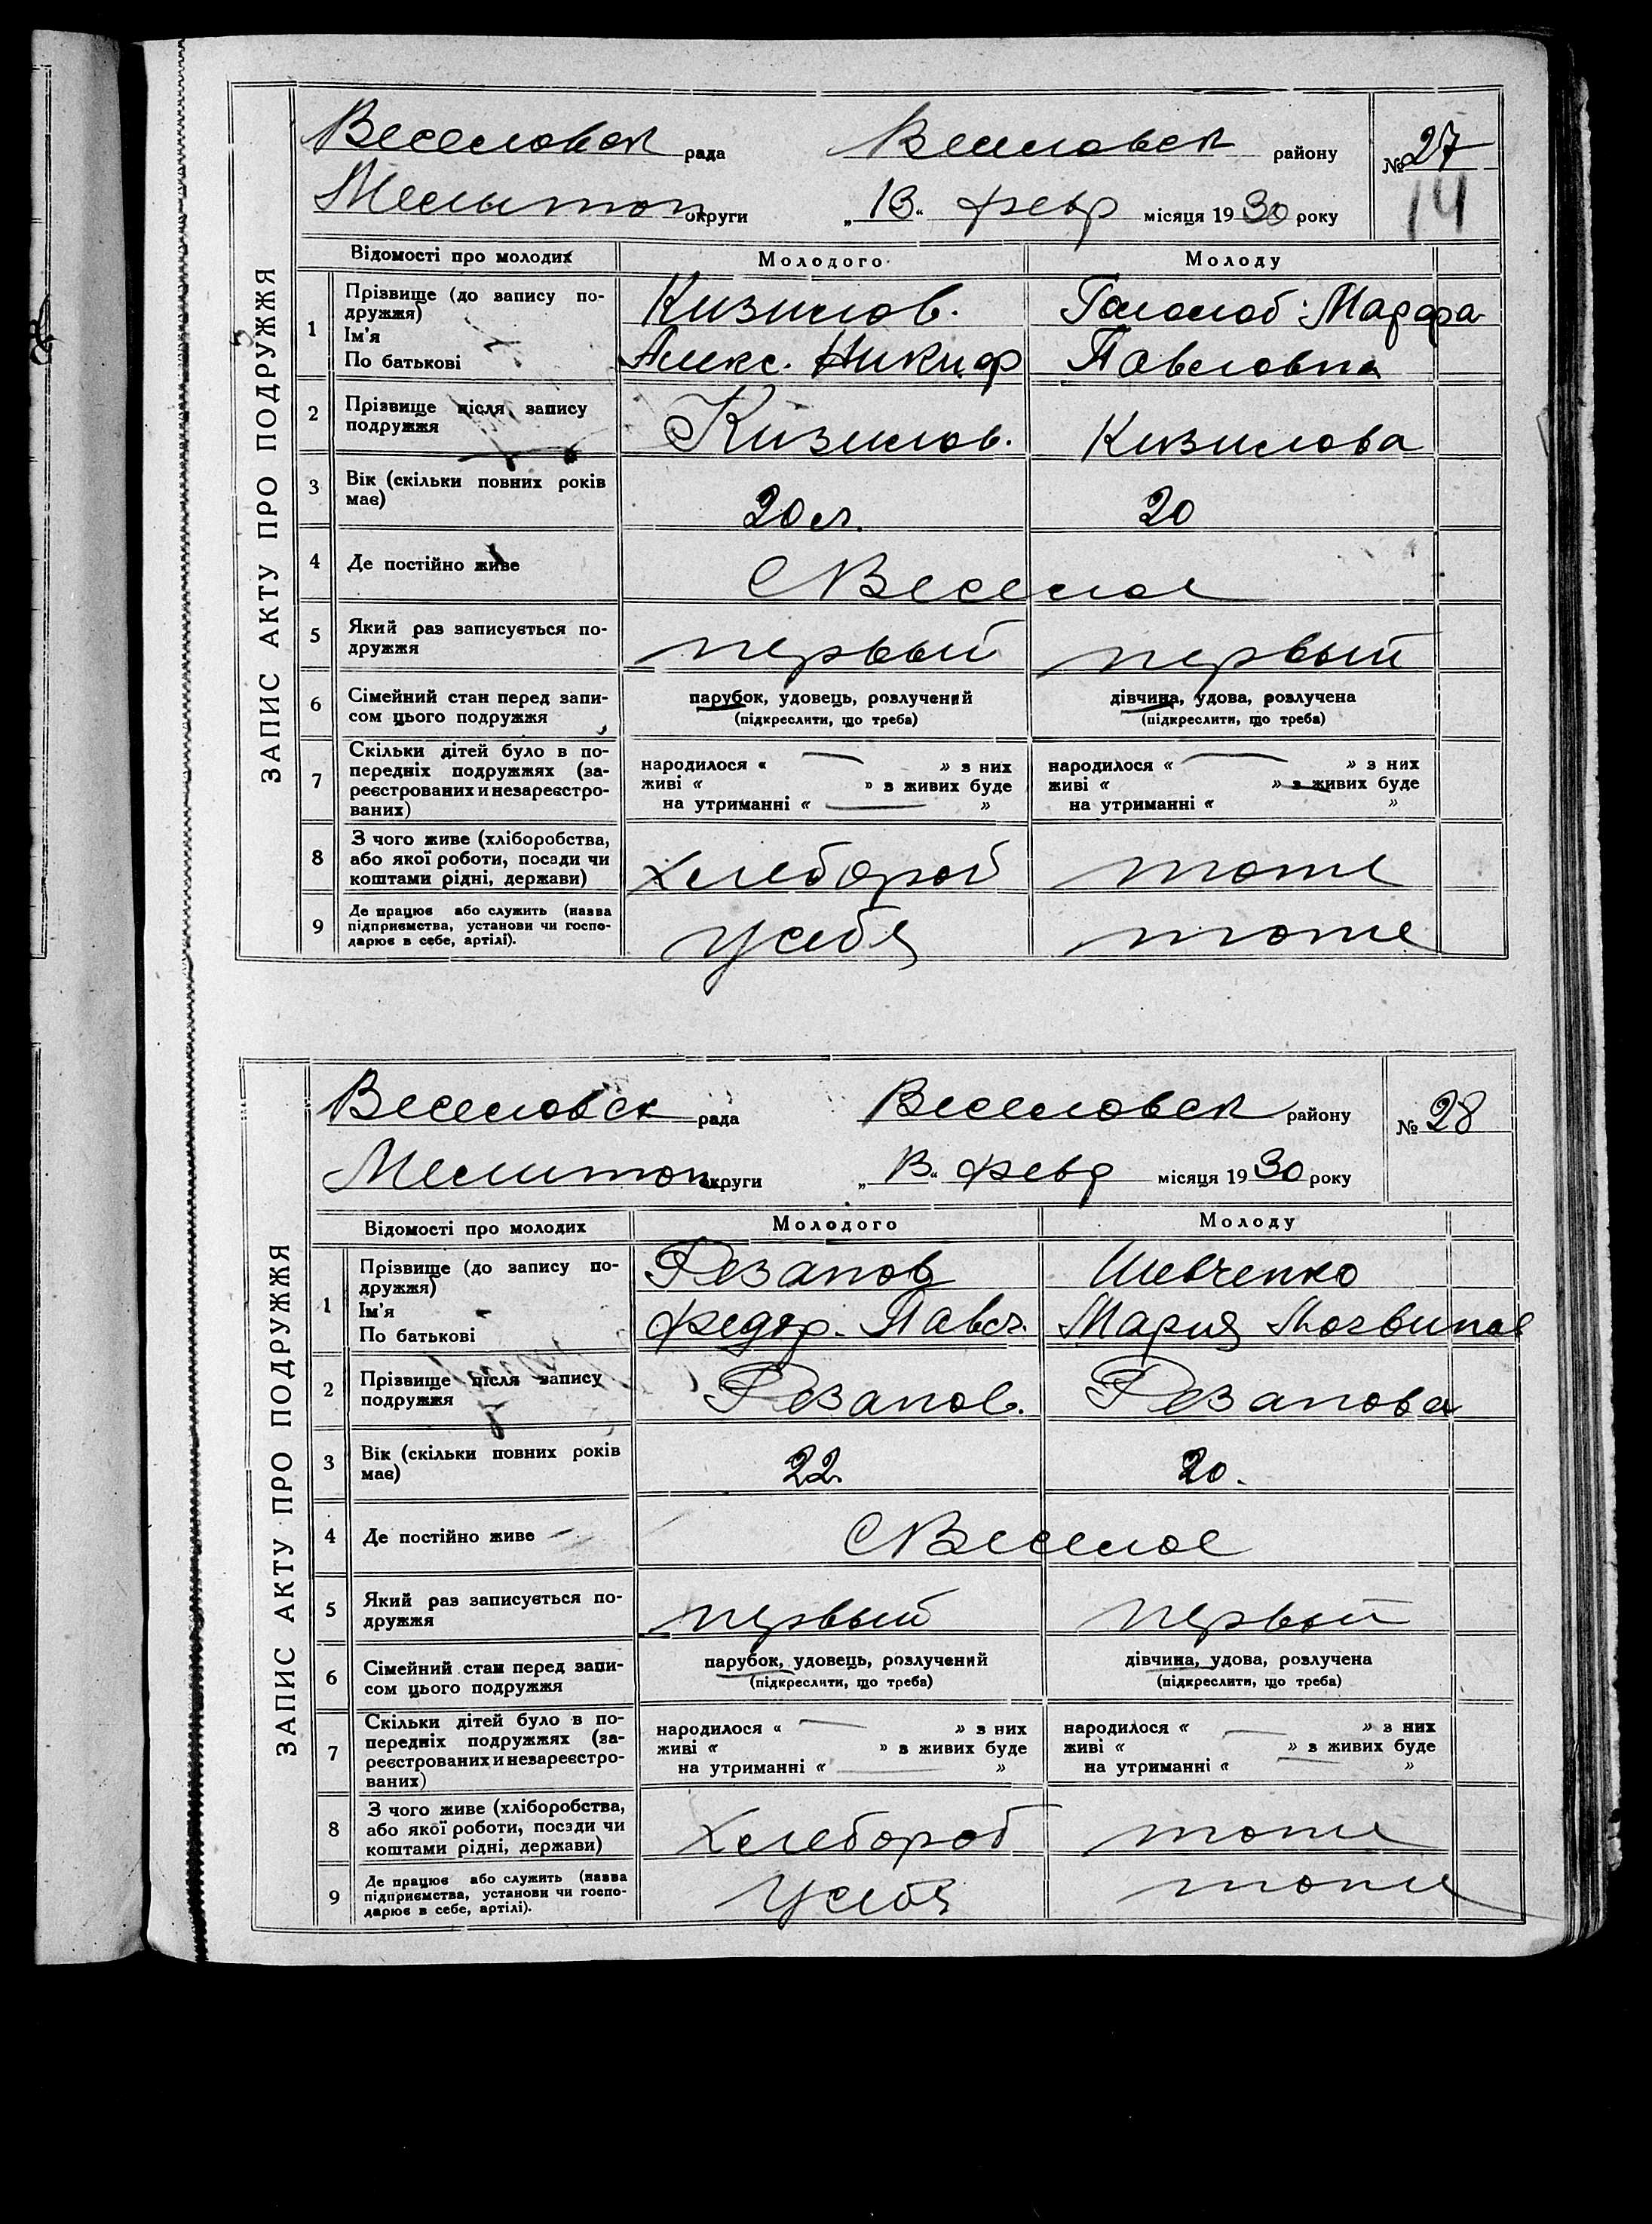 ЗАПИС АКТУ ПРО ПОДРУЖЖЯ
Веселовск рада Веселовск району № 27
Мелитоп округи „13“ февр місяця 1930 року 14
Відомості про молодих Молодого Молоду
1 Прізвище (до запису по-
дружжя)
Ім'я
По батькові
Кизилов. Гололоб Марфа
Алекс. Никиф Павловна
2 Прізвище після запису
подружжя
Кизилов. Кизилова
3 Вік (скільки повних років
має)
20 л. 20
4 Де постійно живе
С Веселое
5 Який раз записується по-
дружжя
первый первый
6 Сімейний стан перед запи-
сом цього подружжя
парубок, удовець, розлучений дівчина, удова, розлучена
(підкреслити, що треба) (підкреслити, що треба)
7 Скільки дітей було в по-
передніх подружжях (за-
реєстрованих и незареєстро-
ваних)
народилося « — » з них народилося « — » з них
живі « » з живих буде живі « » з живих буде
на утриманні « — » на утриманні « »
8 З чого живе (хліборобства,
або якої роботи, посади чи
коштами рідні, держави)
хлебороб тоже
9 Де працює або служить (назва
підприємства, установи чи госпо-
дарює в себе, артілі).
у себя тоже
ЗАПИС АКТУ ПРО ПОДРУЖЖЯ
Веселовск рада Веселовск району № 28
Мелитоп округи „13“ февр місяця 1930 року
Відомості про молодих Молодого Молоду
1 Прізвище (до запису по-
дружжя)
Ім'я
По батькові
Резанов Шевченко
Федор. Павл. Мария
2 Прізвище після запису
подружжя
Резанов. Резанова
3 Вік (скільки повних років
має)
22. 20.
4 Де постійно живе
С Веселое
5 Який раз записується по-
дружжя
первый первый
6 Сімейний стан перед запи-
сом цього подружжя
парубок, удовець, розлучений дівчина, удова, розлучена
(підкреслити, що треба) (підкреслити, що треба)
7 Скільки дітей було в по-
передніх подружжях (за-
реєстрованих и незареєстро-
ваних)
народилося « — » з них народилося « — » з них
живі « » з живих буде живі « » з живих буде
на утриманні « — » на утриманні « — »
8 З чого живе (хліборобства,
або якої роботи, посади чи
коштами рідні, держави)
хлебороб тоже
9 Де працює або служить (назва
підприємства, установи чи госпо-
дарює в себе, артілі).
у себя тоже